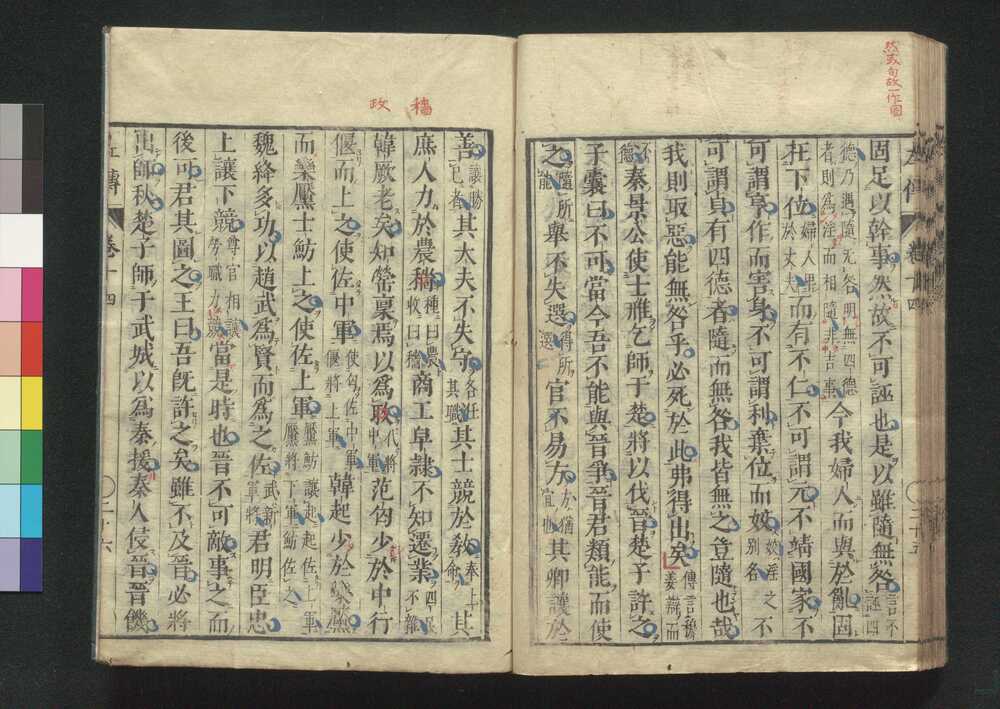 然故句故一作固
左傳 卷十四 二十五
固足以幹事然故不可誣也是以雖隨無咎言不誣四
德乃遇隨无咎明無四德者則為淫而相隨非吉事今我婦人而與於亂固
在下位婦人卑於丈夫而有不仁不可謂元不靖國家不
可謂亨作而害身不可謂利棄位而姣姣淫之別名不
可謂貞有四德者隨而無咎我皆無之豈隨也哉
我則取惡能無咎乎必死於此弗得出矣傳言穆姜辯而
不德秦景公使士雃乞師于楚將以伐晉楚子許之
子囊曰不可當今吾不能與晉爭晉君類能而使
之隨所能舉不失選得所選官不易方方猶宜也其卿讓於
穡
政
善讓勝己者其大夫不失守各任其職其士競於教奉上命其
庶人力於農穡種曰農收曰穡商工皁隸不知遷業四民不雜
韓厥老矣知罃稟焉以為政代將中軍范匄少於中行
偃而上之使佐中軍使匄佐中軍偃將上軍韓起少於欒黶
而欒黶士魴上之使佐上軍黶魴讓起起佐上軍黶將下軍魴佐之
魏絳多功以趙武為賢而為之佐武新軍將君明臣忠
上讓下競尊官相讓勞職力競當是時也晉不可敵事之而
後可君其圖之王曰吾旣許之矣雖不及晉必將
出師秋楚子師于武城以為秦援秦人侵晉晉饑
左傳 卷十四 二十六